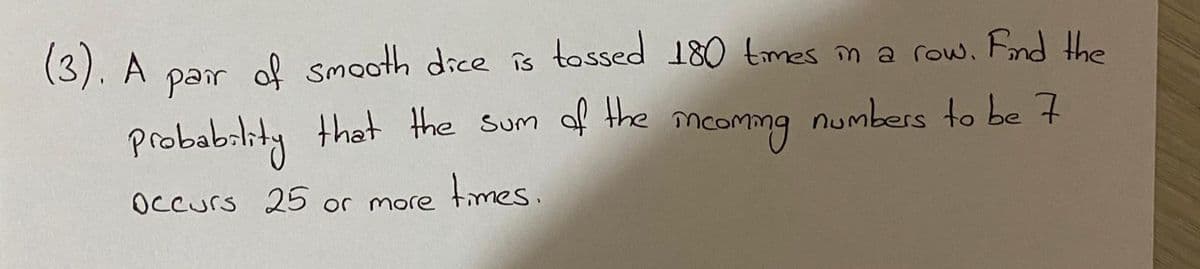 (3). A pair of smooth dice is tossed 180 times in a row. Find the
probability that the sum of the incoming numbers to be 7
occurs 25 or more times.